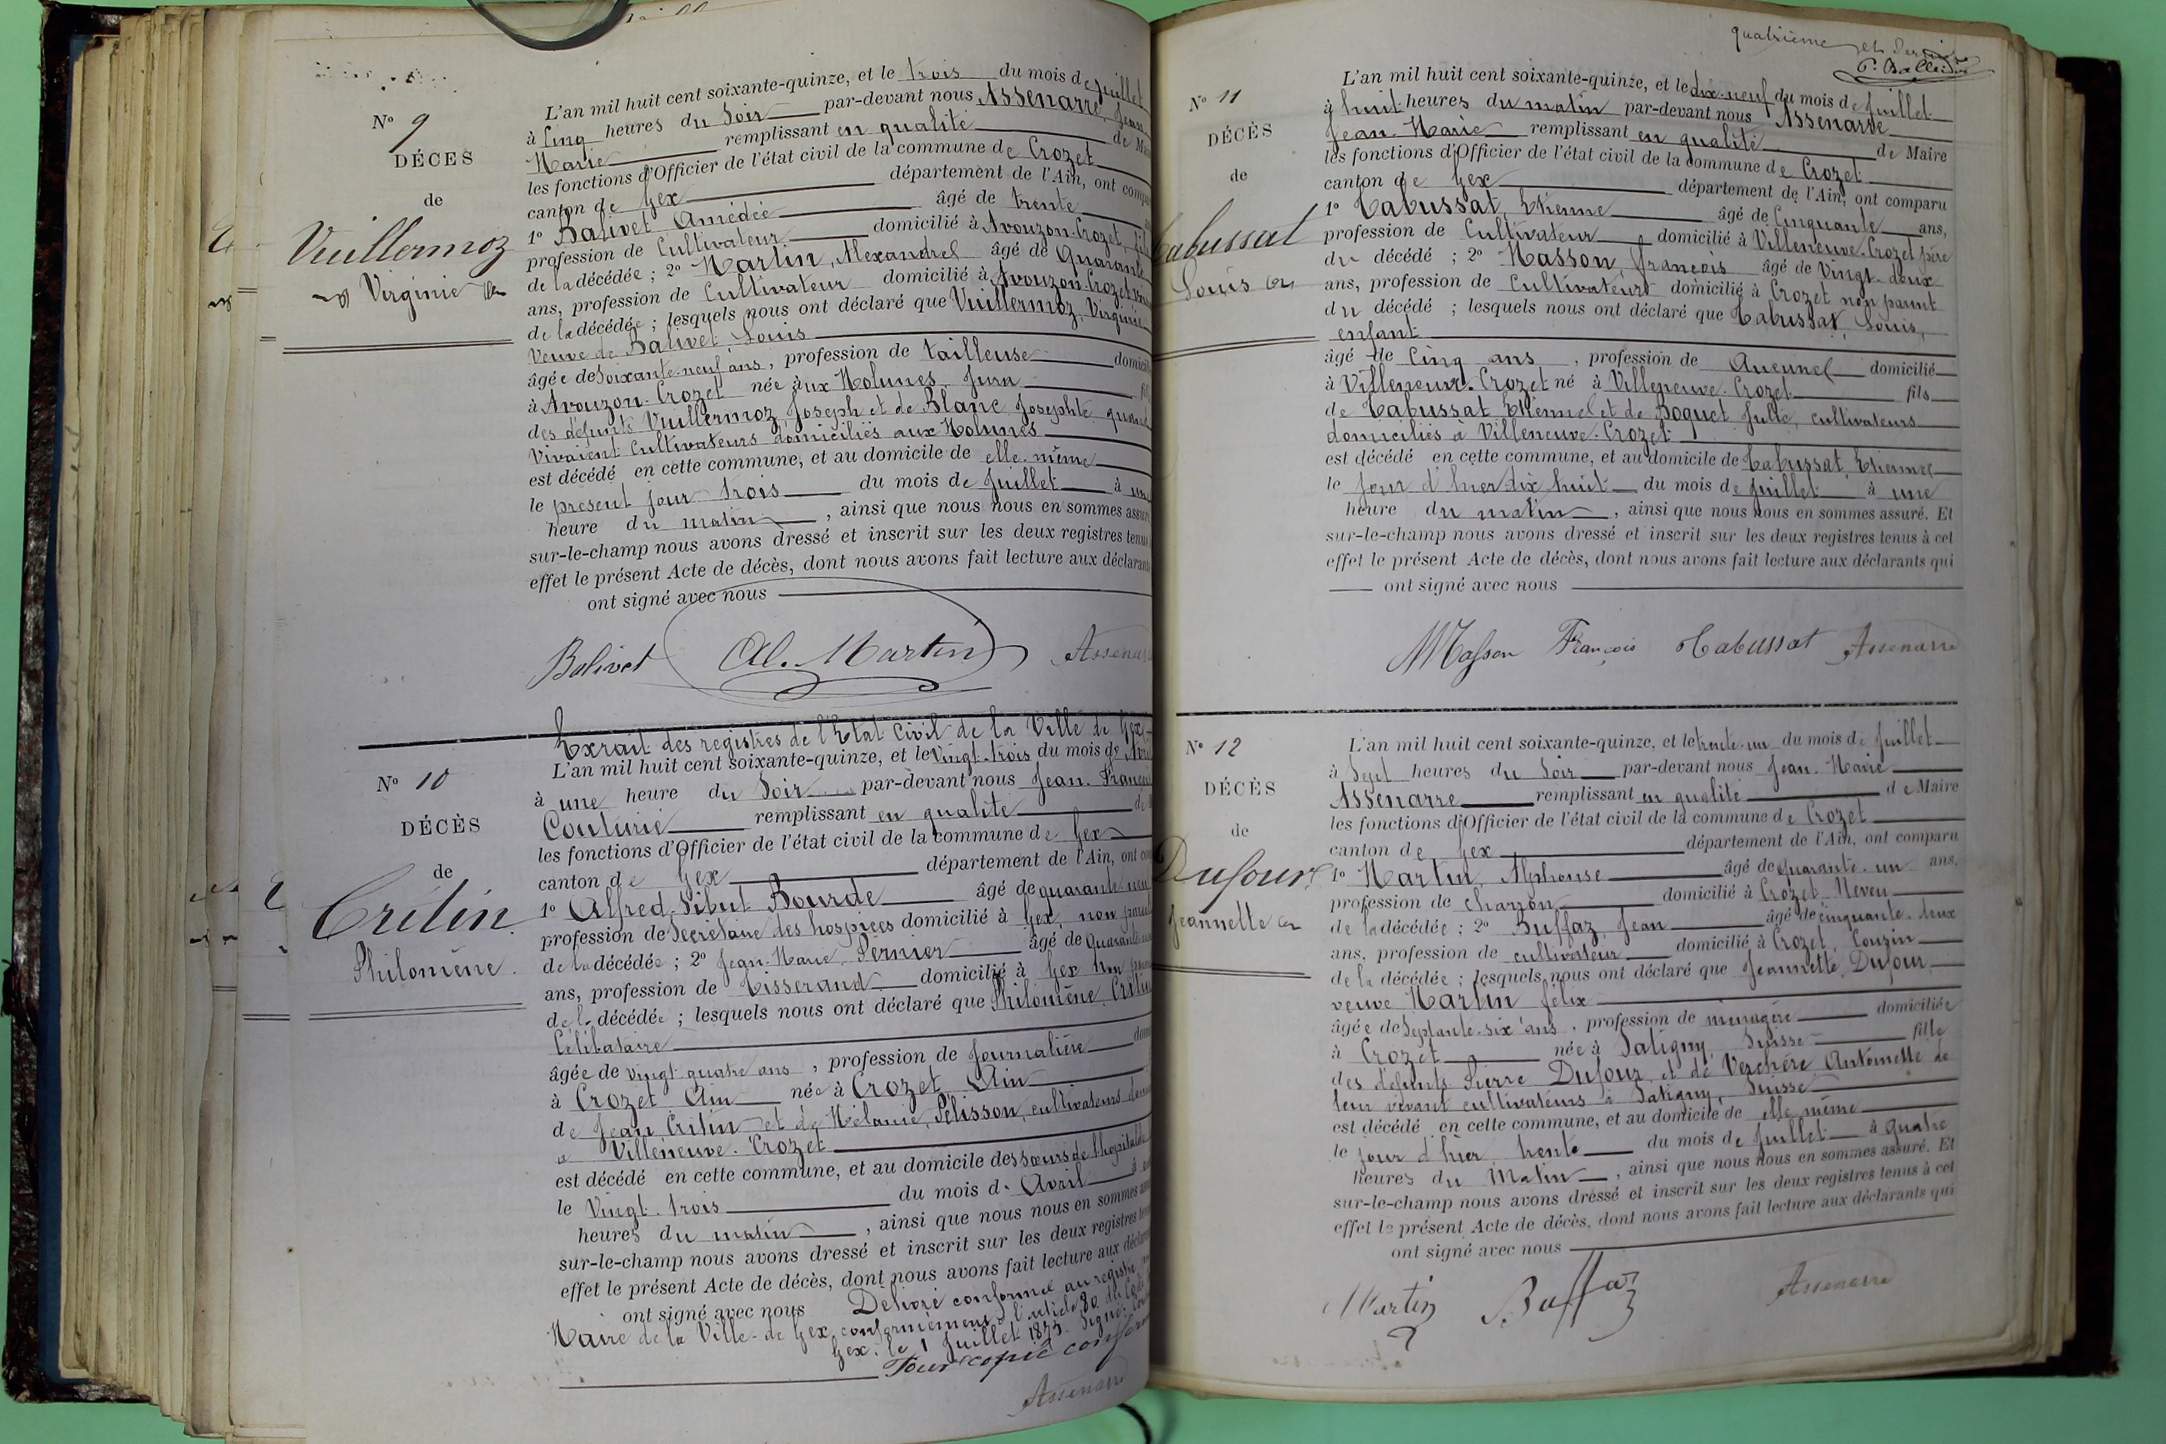 N° 9
DÉCES
de
Vuillermoz
Virginie
L'an mil huit cent soixante-quinze, et le trois du mois de juillet
à cinq heures du soir par-devant nous Assenarre, Jean
Marie remplissant en qualité de Maire
les fonctions d'Officier de l'état civil de la commune de Crozet
canton de Gex département de l'Ain, ont compa
1° Balivet Amédée âgé de trente
profession de cultivateur domicilié à Avouzon-Crozet, fils
de la décédée ; 2° Martin, Alexandre âgé de quarante
ans, profession de cultivateur domicilié à Avouzon-Crozet
de la décédée ; lesquels nous ont déclaré que Vuillermoz, Virginie
veuve de Balivet Louis
âgée de soixante-neuf ans, profession de tailleuse domicil
à Avouzon-Crozet née aux Molunes, Jura
des défunts Vuillermoz Joseph et de Blanc Josephte quand
vivaient cultivateurs domiciliés aux Molunes
est décédé en cette commune, et au domicile de elle-même
le présent jour trois du mois de juillet à une
heure du matin, ainsi que nous nous en sommes assuré
sur-le-champ nous avons dressé et inscrit sur les deux registres tenus
effet le présent Acte de décès, dont nous avons fait lecture aux déclarants
ont signé avec nous
Balivet Al. Martin Assenarre
N° 10
DÉCÈS
de
Crétin
Philomène.
Extrait des registres de l'Etat Civil de la Ville de Gex
L'an mil huit cent soixante-quinze, et le vingt-trois du mois de Avril
à une heure du soir par-devant nous Jean-François
Couturié remplissant en qualité de
les fonctions d'Officier de l'état civil de la commune de Gex
canton de Gex département de l'Ain, ont com
1° Alfred Sibut Bourde âgé de quarante neuf
profession de Secrétaire des hospices domicilié à Gex, non parent
de la décédée ; 2° Jean-Marie Pernier âgé de quarante
ans, profession de Tisserand domicilié à Gex non parent
de la décédée ; lesquels nous ont déclaré que Philomène Crétin
Célibataire
âgée de vingt quatre ans, profession de journalière dom
à Crozet Ain née à Crozet, Ain
de Jean Crétin et de Mélanie Pélisson, cultivateurs
à Villeneuve-Crozet
est décédé en cette commune, et au domicile des sœurs de l'hospital
le vingt-trois du mois d'Avril à
heures du matin, ainsi que nous nous en sommes
sur-le-champ nous avons dressé et inscrit sur les deux registres
effet le présent Acte de décès, dont nous avons fait lecture aux déclarants
ont signé avec nous Délivré conforme au registre
Maire de la Ville de Gex conformément à l'article 80 du Code
Gex, le 1 Juillet 1875. Signé:
Pour copie conforme
Assenarre
quatrième et dernier
P. Balli
N° 11
DÉCÈS
de
Tabussat
Louis
L'an mil huit cent soixante-quinze, et le dix-neuf du mois de juillet
à huit heures du matin par-devant nous Assenarre
Jean-Marie remplissant en qualité de Maire
les fonctions d'Officier de l'état civil de la commune de Crozet
canton de Gex département de l'Ain, ont comparu
1° Tabussat Etienne âgé de cinquante ans,
profession de cultivateur domicilié à Villeneuve-Crozet père
du décédé ; 2° Masson, François âgé de vingt-deux
ans, profession de cultivateur domicilié à Crozet non parent
du décédé ; lesquels nous ont déclaré que Tabussat, Louis,
enfant
âgé de cinq ans, profession de Aucune domicilié
à Villeneuve-Crozet né à Villeneuve-Crozet fils
de Tabussat Etienne et de Boquet Julie, cultivateurs
domiciliés à Villeneuve-Crozet
est décédé en cette commune, et au domicile de Tabussat, Etienne
le jour d'hier dix huit du mois de juillet à une
heure du matin, ainsi que nous nous en sommes assuré. Et
sur-le-champ nous avons dressé et inscrit sur les deux registres tenus à cet
effet le présent Acte de décès, dont nous avons fait lecture aux déclarants qui
ont signé avec nous
Masson François Tabussat Assenarre
N° 12
DÉCÈS
de
Dufour
Jeannette
L'an mil huit cent soixante-quinze, et le trente-un du mois de juillet
à sept heures du soir par-devant nous Jean-Marie
Assenarre remplissant en qualité de Maire
les fonctions d'Officier de l'état civil de la commune de Crozet
canton de Gex département de l'Ain, ont comparu
1° Martin, Alphonse âgé de quarante-un ans,
profession de charron domicilié à Crozet, Neveu
de la décédée ; 2° Buffaz Jean âgé de cinquante-deux
ans, profession de cultivateur domicilié à Crozet, Cousin
de la décédée ; lesquels nous ont déclaré que Jeannette, Dufour,
veuve Martin félix
âgée de septante-six ans, profession de ménagère domiciliée
à Crozet née à Satigny Suisse fille
des défunts Pierre Dufour et de Verchère Antoinette de
leur vivant cultivateurs à Satigny, Suisse
est décédé en cette commune, et au domicile de elle-même
le jour d'hier trente du mois de juillet à quatre
heures du matin, ainsi que nous nous en sommes assuré. Et
sur-le-champ nous avons dréssé et inscrit sur les deux registres tenus à cet
effet le présent Acte de décès, dont nous avons fait lecture aux déclarants qui
ont signé avec nous
Martin Buffaz Assenarre